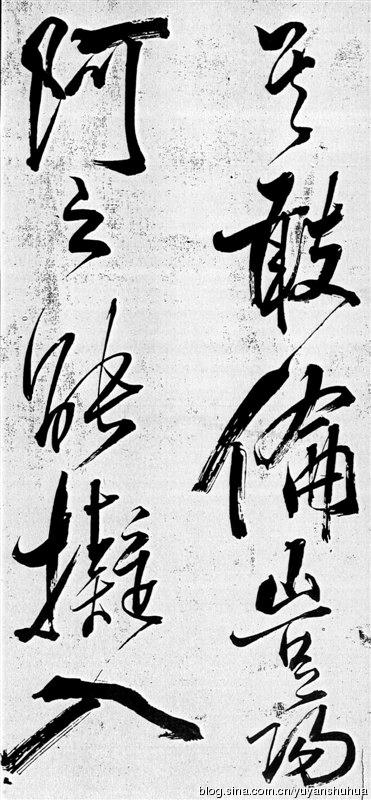 莫敢倫豈陽
阿之能擬入
blog.sina.com.cn/yuyanshuhua